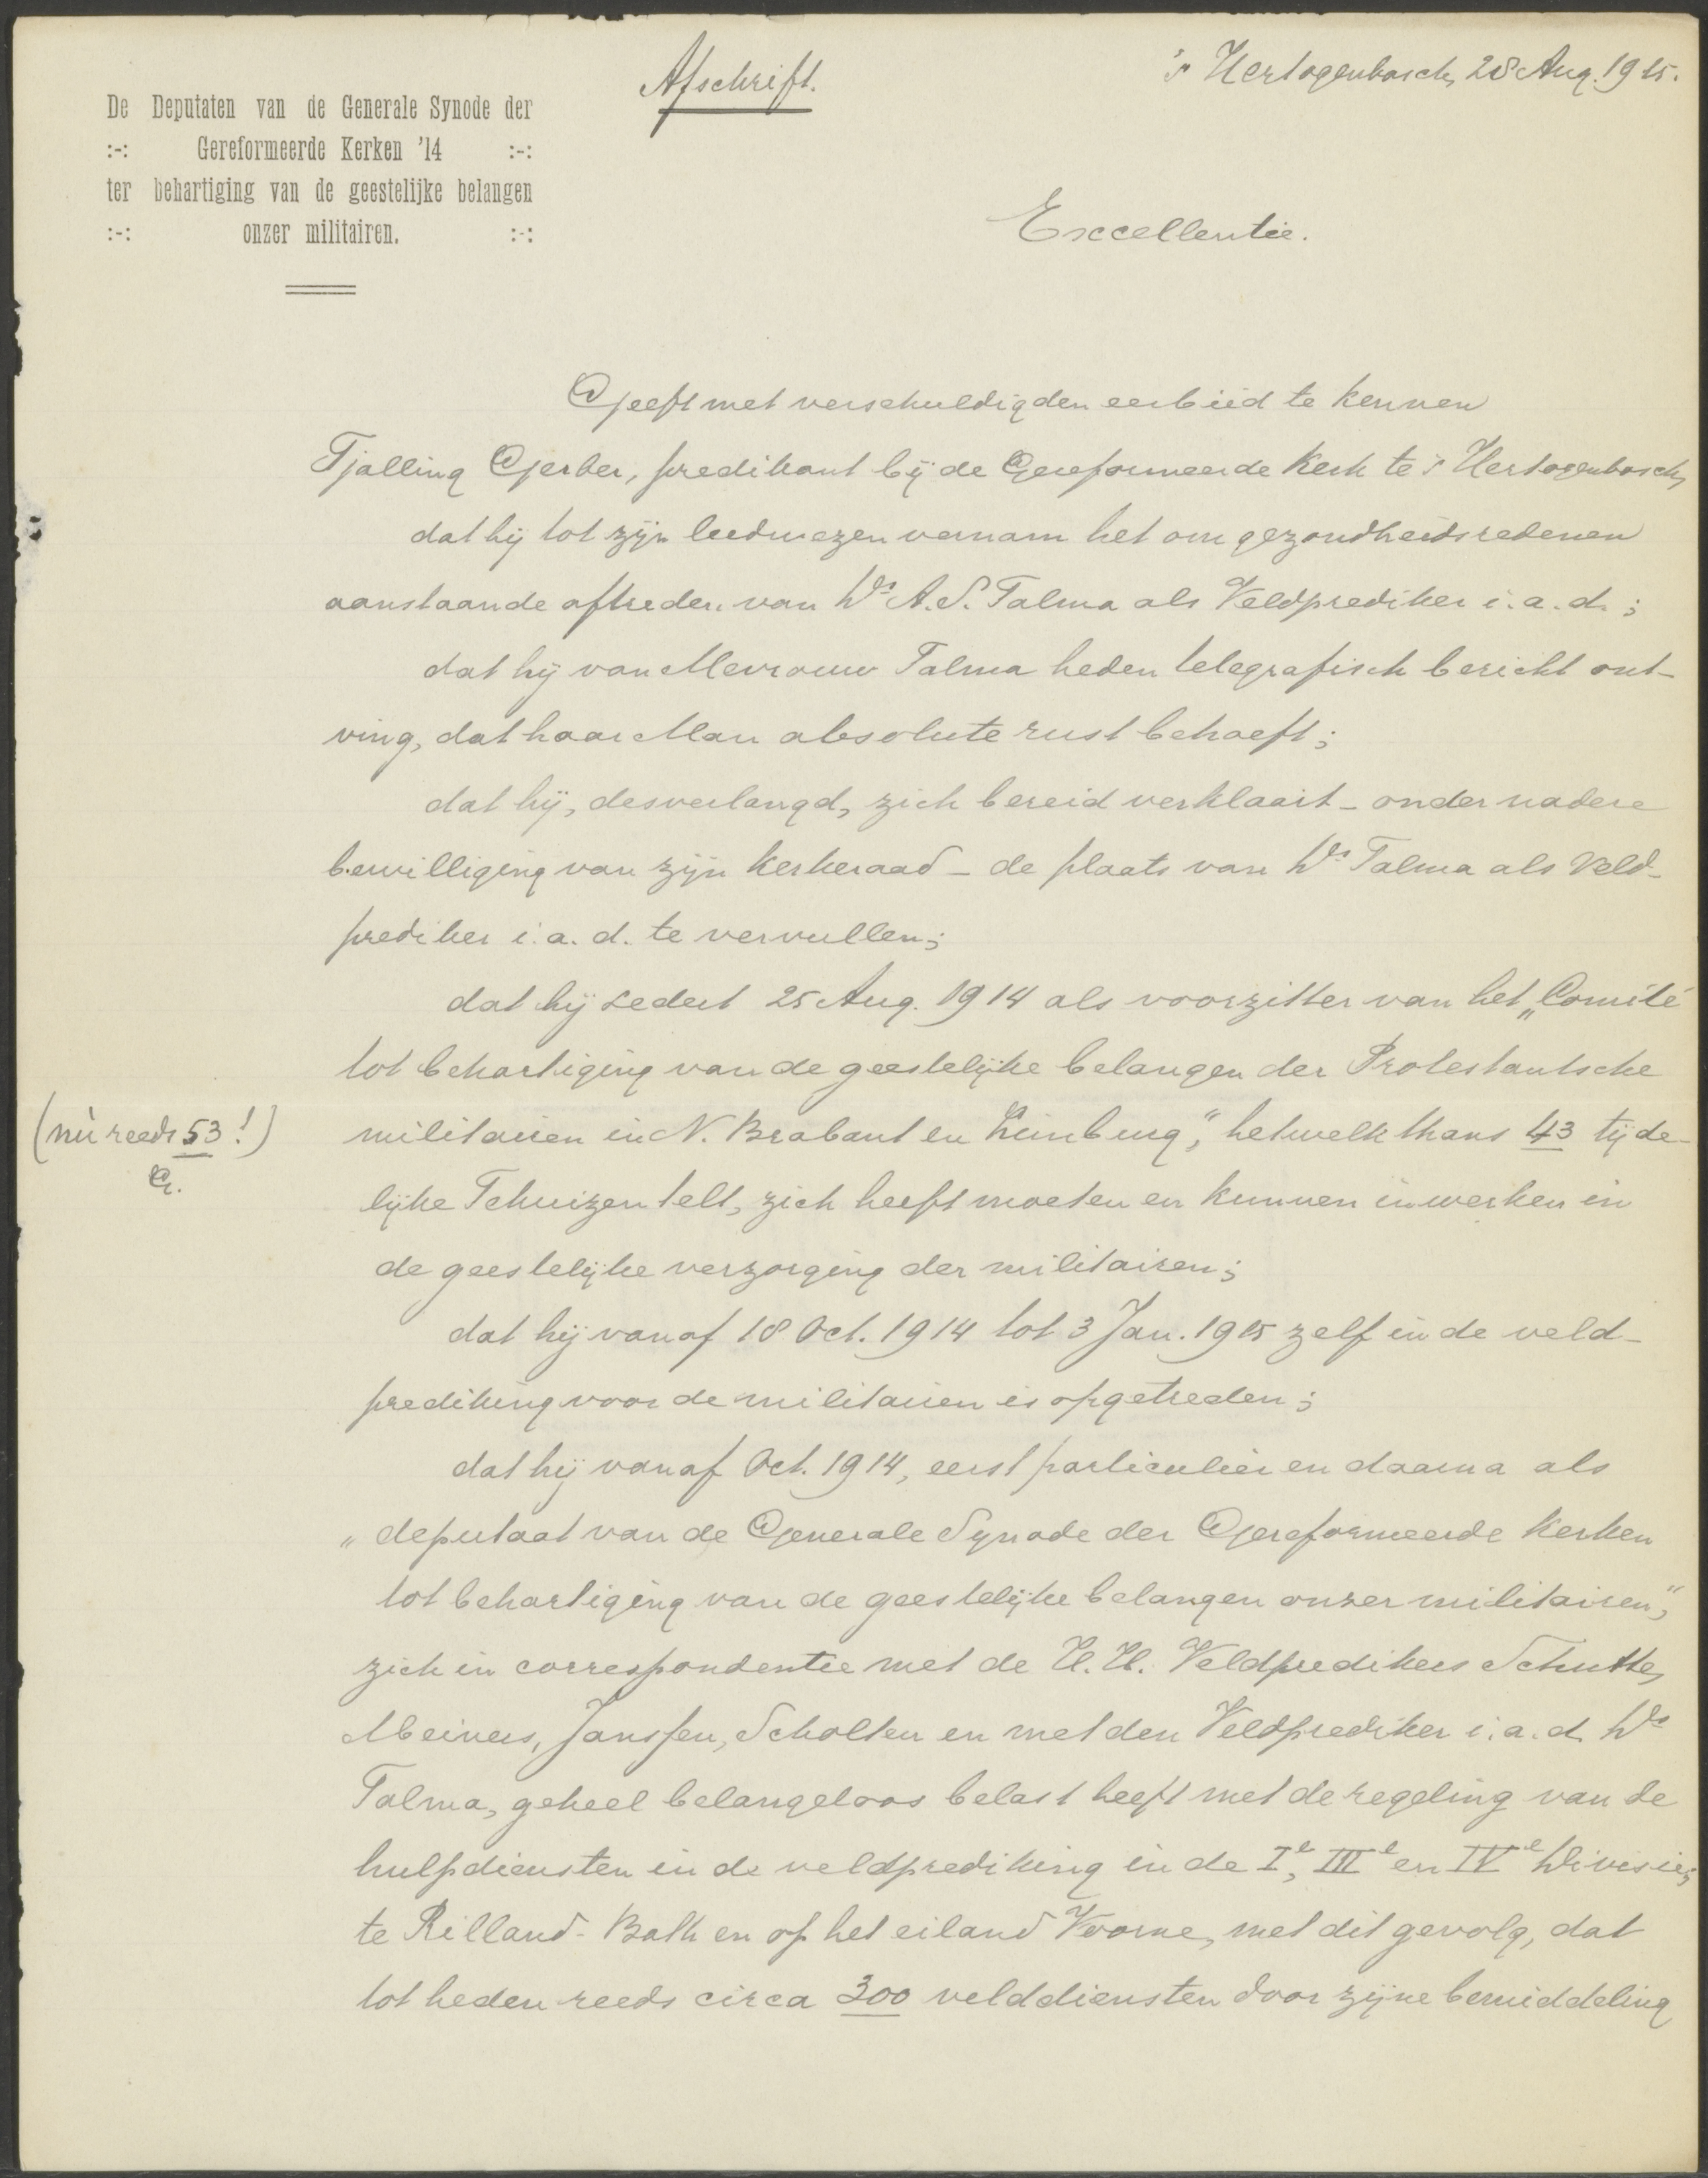 Afschrift.
's Hertogenbosch, 28 Aug. 1915.
De Deputaten van de Generale Synode der
:-: Gereformeerde Kerken '14 :-:
ter behartiging van de geestelijke belangen
:-: onzer militairen. :-:
Excellentie.
Geeft met verschuldigden eerbied te kennen
Tjalling Gerber, predikant bij de Gereformeerde Kerk te 's Hertogenbosch,
dat hij tot zijn leedwezen vernam het om gezondheidsredenen
aanstaande aftreden van Ds A.S. Talma als Veldprediker i.a.d.;
dat hij van Mevrouw Talma heden telegrafisch bericht ont-
ving, dat haar Man absolute rust behoeft;
dat hij, desverlangd, zich bereid verklaart - onder nadere
bewilliging van zijn kerkeraad - de plaats van Ds Talma als Veld-
prediker i.a.d. te vervullen;
dat hij sedert 25 Aug. 1914 als voorzitter van het „Comité
tot behartiging van de geestelijke belangen der Protestantsche
militairen in N. Brabant en Limburg", hetwelk thans 43 tijde-
(nù reeds 53!)
G.
lijke Tehuizen telt, zich heeft moeten en kunnen inwerken in
de geestelijke verzorging der militairen;
dat hij vanaf 18 Oct. 1914 tot 3 Jan. 1915 zelf in de veld-
prediking voor de militairen is opgetreden;
dat hij vanaf Oct. 1914, eerst particulier en daarna als
„deputaat van de Generale Synode der Gereformeerde Kerken
tot behartiging van de geestelijke belangen onzer militairen",
zich in correspondentie met de H.H. Veldpredikers Schutte,
Meiners, Janssen, Scholten en met den Veldprediker i.a.d. Ds
Talma, geheel belangeloos belast heeft met de regeling van de
hulpdiensten in de veldprediking in de Ie, IIIe en IVe Divisie;
te Rilland-Bath en op het eiland Voorne, met dit gevolg, dat
tot heden reeds circa 300 velddiensten door zijne bemiddeling